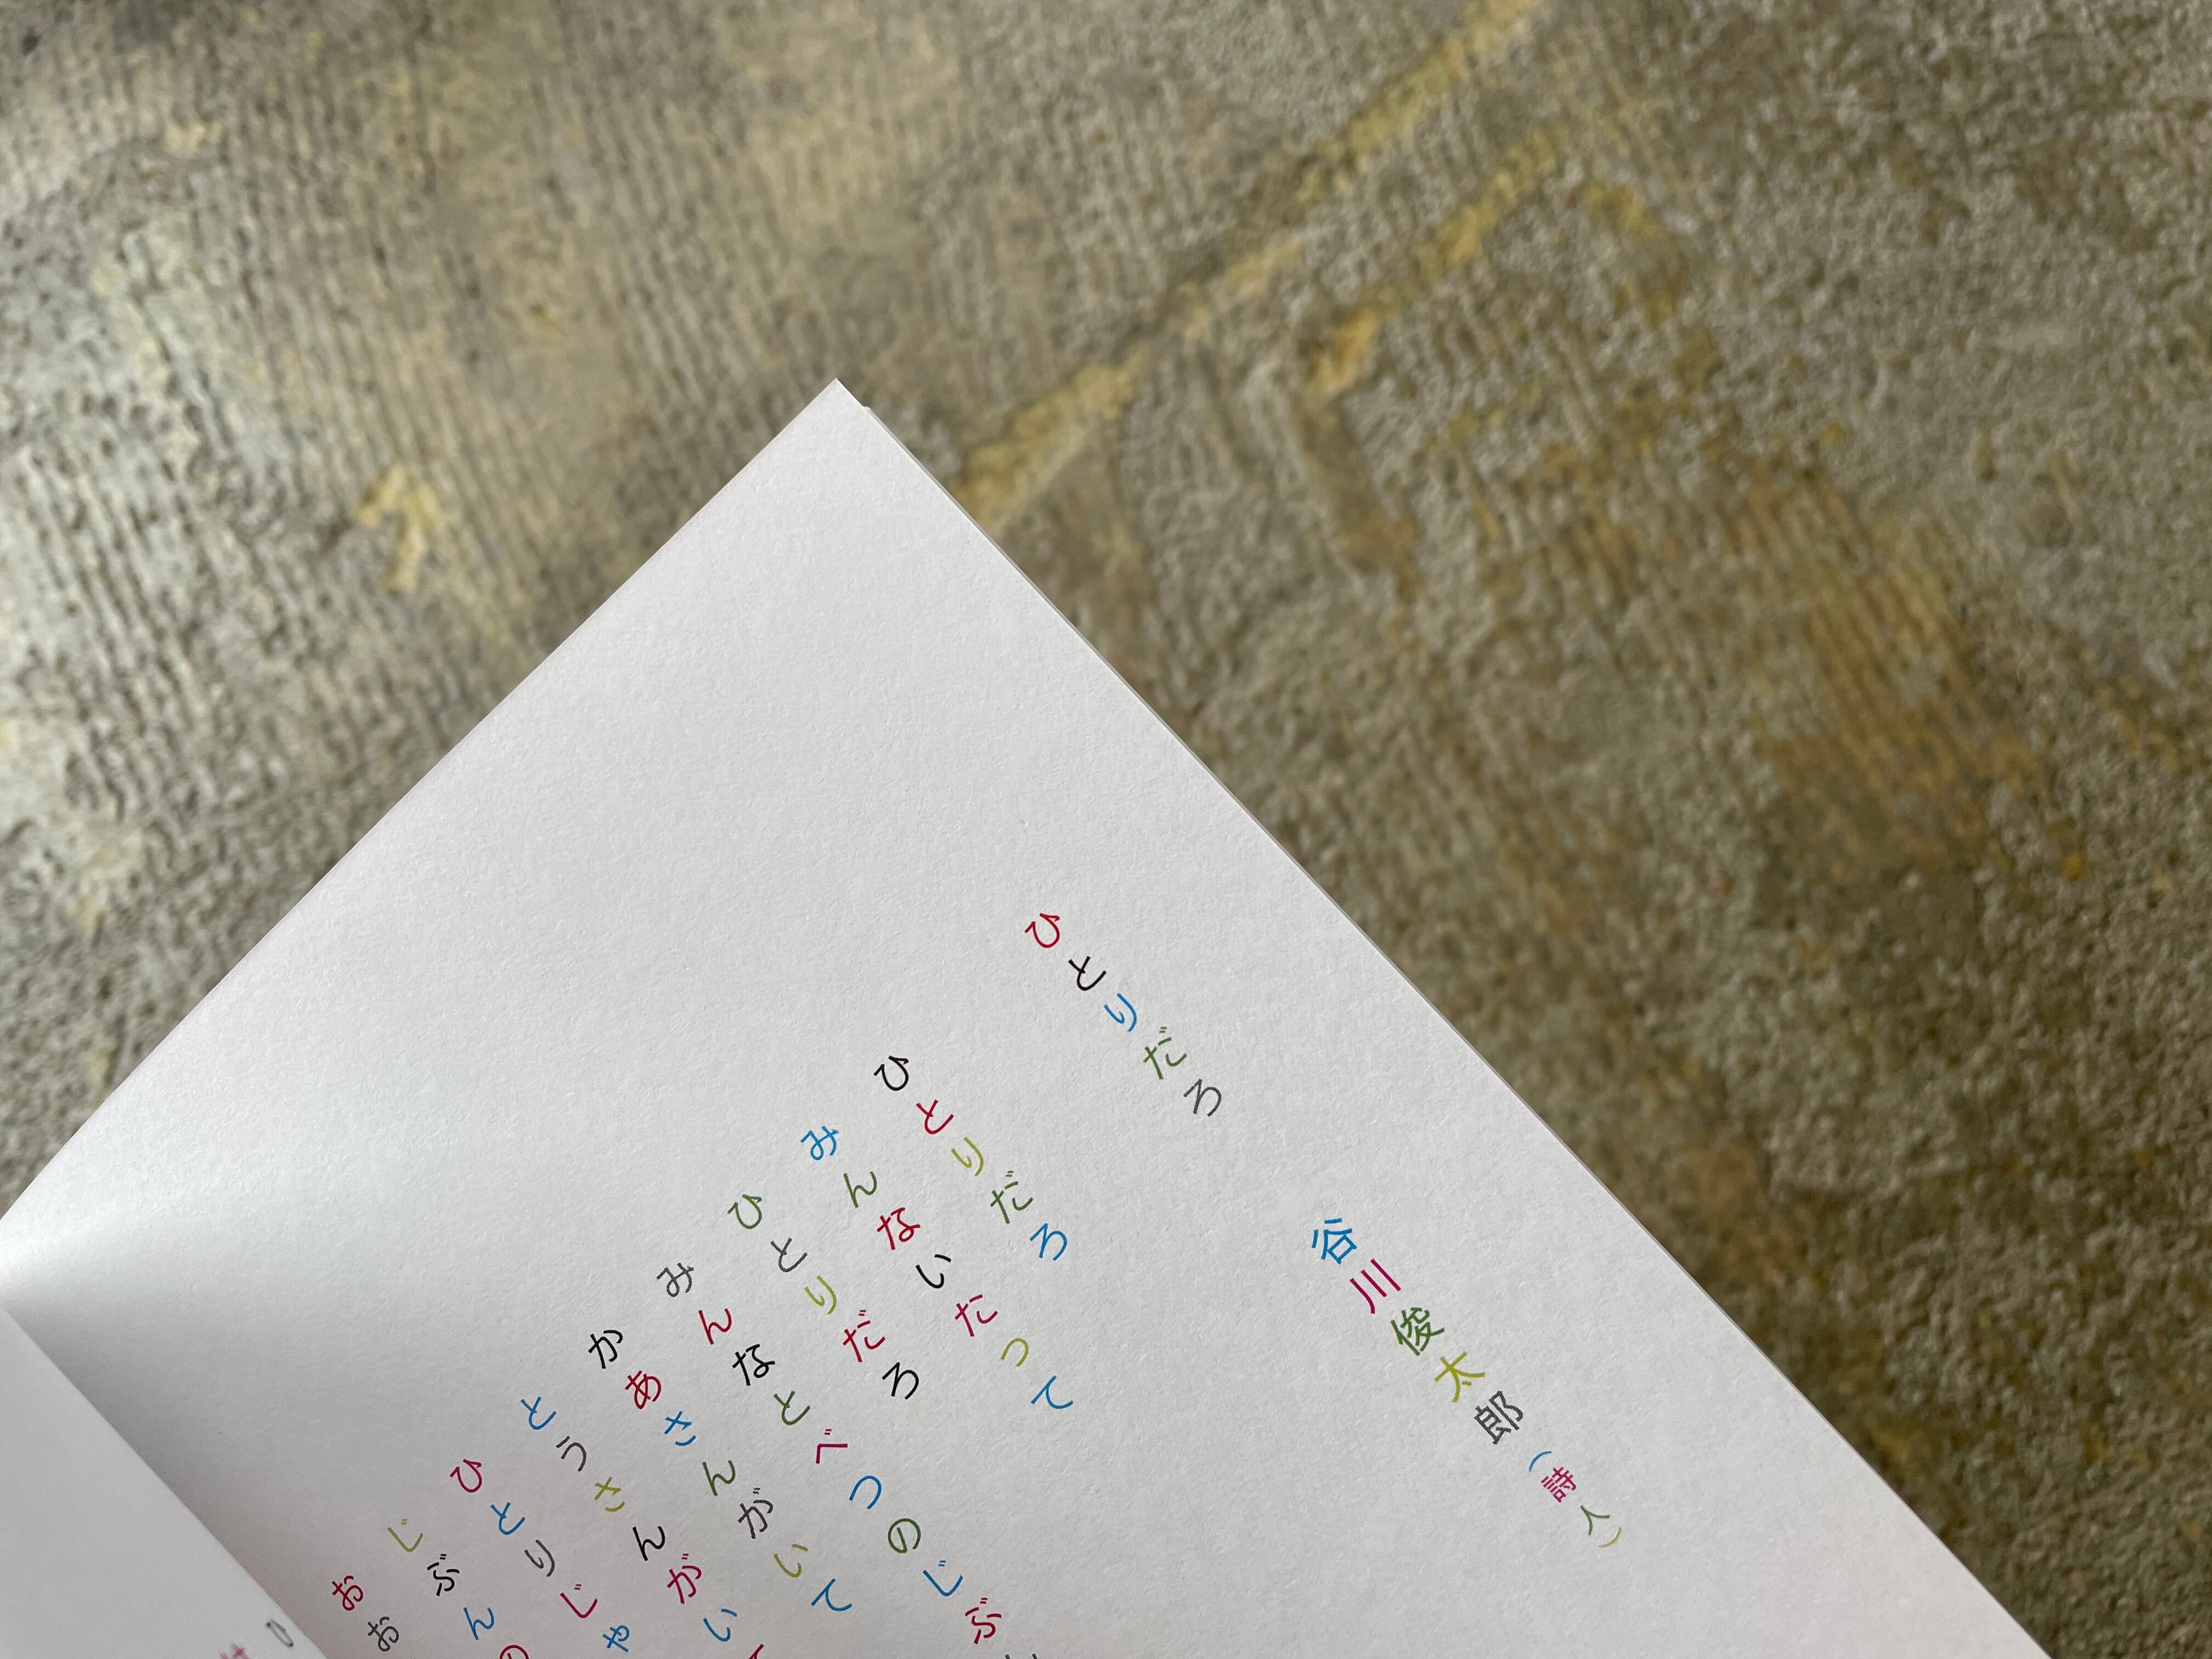 ひとりだろ
谷川俊太郎（詩人）
ひとりだろ
みんないたって
ひとりだろ
みんなとべつのじぶ
かあさんがいて
とうさんがいて
ひとりのじゃ
じぶんの
おお